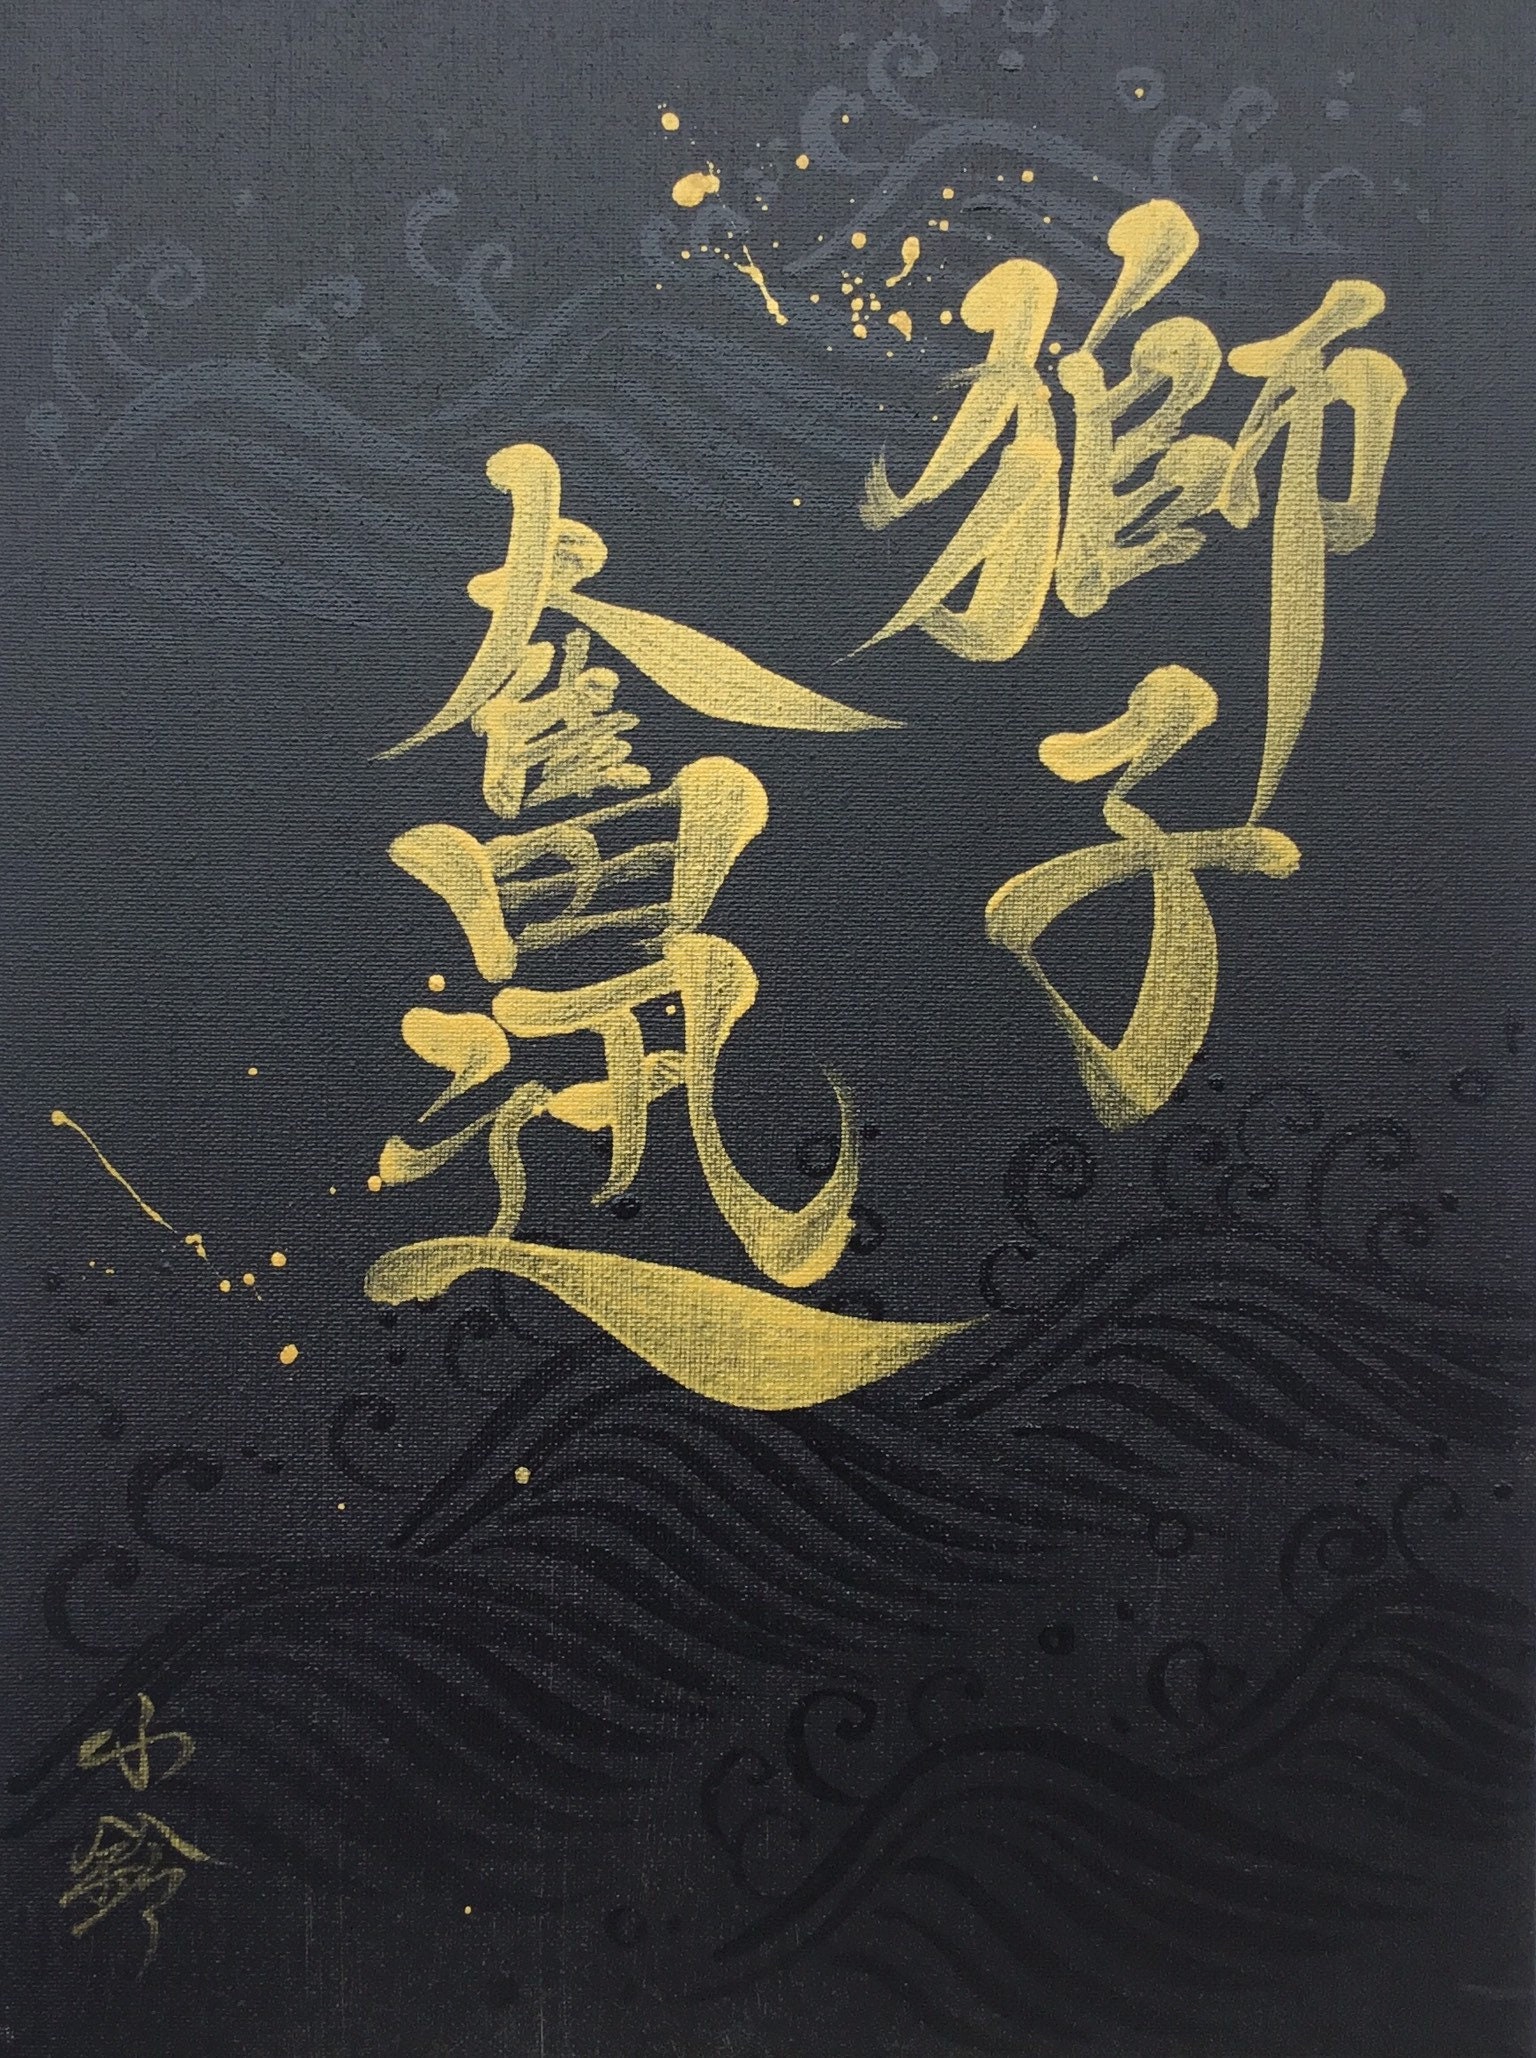 獅子
奮迅
小鈴